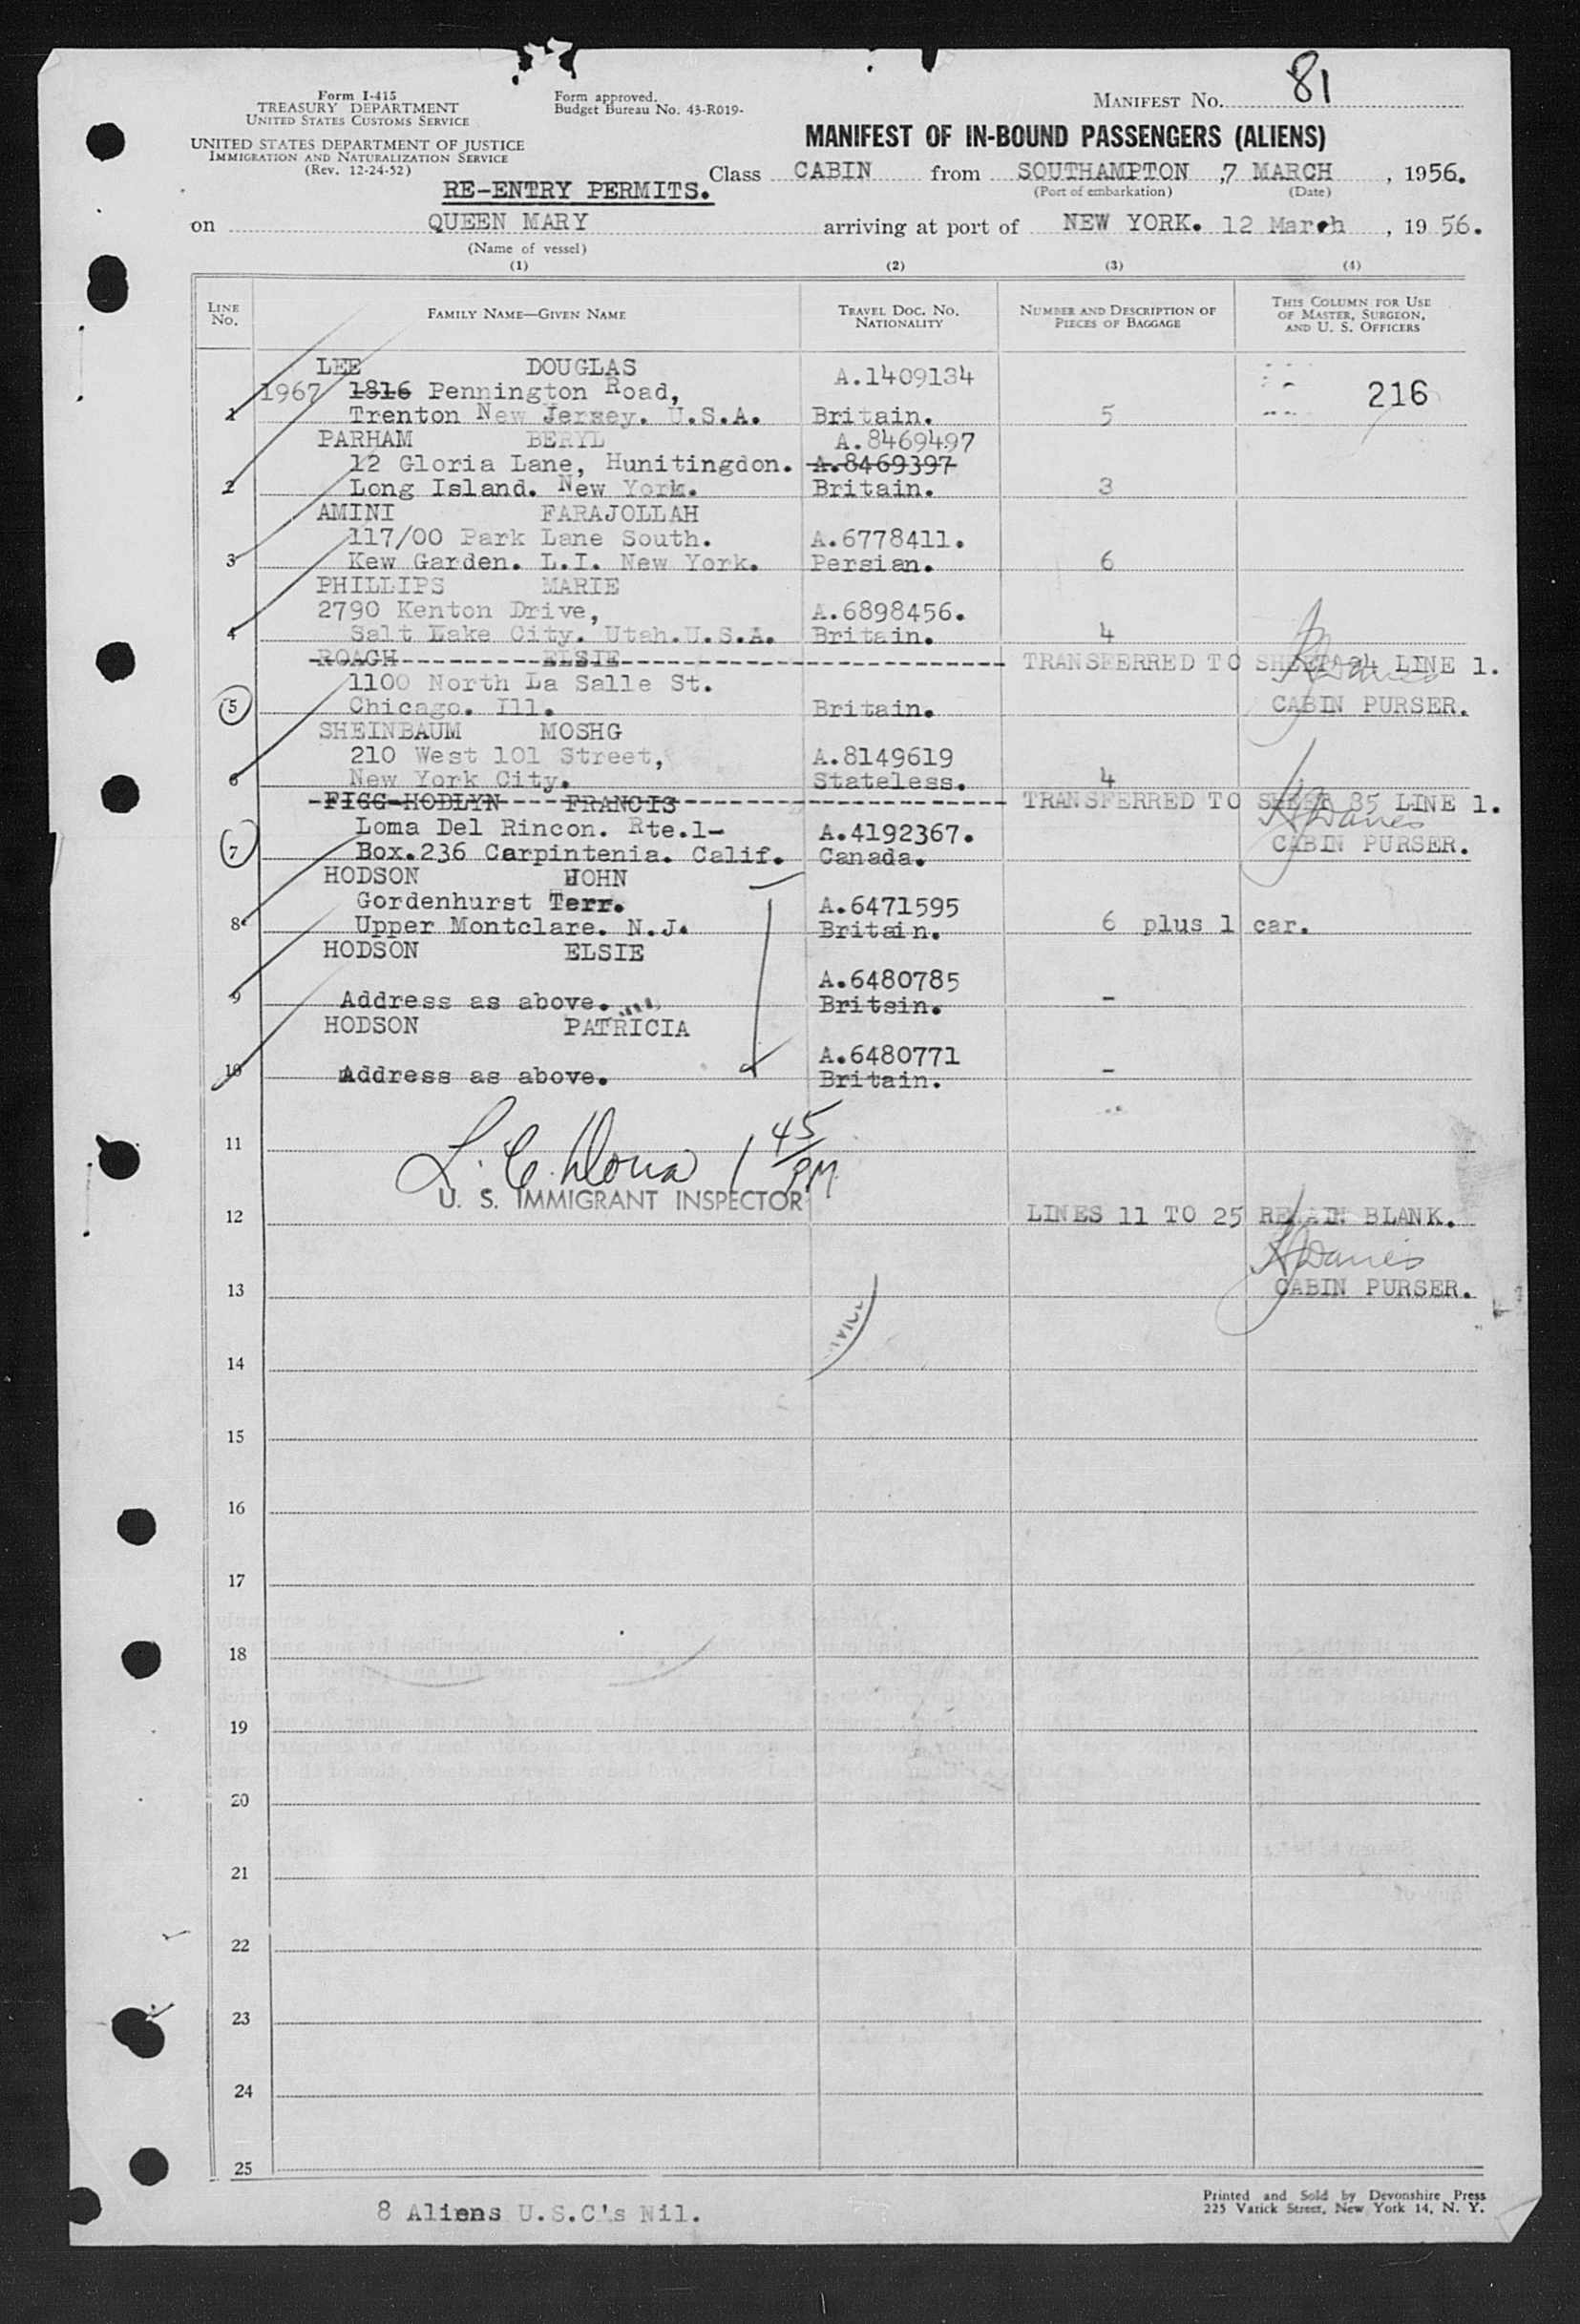 Form I-415
TREASURY DEPARTMENT
UNITED STATES CUSTOMS SERVICE
UNITED STATES DEPARTMENT OF JUSTICE
IMMIGRATION AND NATURALIZATION SERVICE
(Rev. 12-24-52)
Form approved.
Budget Bureau No. 43-R019-
MANIFEST No. 81
MANIFEST OF IN-BOUND PASSENGERS (ALIENS)
RE-ENTRY PERMITS.
Class CABIN from SOUTHAMPTON ,7 MARCH , 1956.
(Port of embarkation) (Date)
on QUEEN MARY arriving at port of NEW YORK. 12 March , 19 56.
(Name of vessel)
(1) (2) (3) (4)
LINE No. FAMILY NAME—GIVEN NAME TRAVEL DOC. NO. NATIONALITY NUMBER AND DESCRIPTION OF PIECES OF BAGGAGE THIS COLUMN FOR USE OF MASTER, SURGEON, AND U. S. OFFICERS
LEE DOUGLAS A.1409134
1967 1816 Pennington Road, 216
1 Trenton New Jersey. U.S.A. Britain. 5
PARHAM BERYL A.8469497
12 Gloria Lane, Hunitingdon. A.8469397
2 Long Island. New York. Britain. 3
AMINI FARAJOLLAH
117/00 Park Lane South. A.6778411.
3 Kew Garden. L.I. New York. Persian. 6
PHILLIPS MARIE
2790 Kenton Drive, A.6898456.
4 Salt Lake City. Utah.U.S.A. Britain. 4
ROAGH ELSIE TRANSFERRED TO SHEET 84 LINE 1.
1100 North La Salle St.
5 Chicago. Ill. Britain. CABIN PURSER.
SHEINBAUM MOSHG
210 West 101 Street, A.8149619
6 New York City. Stateless. 4
FIGG-HODLYN FRANCIS TRANSFERRED TO SHEET 85 LINE 1.
Loma Del Rincon. Rte.1- A.4192367.
7 Box.236 Carpintenia. Calif. Canada. CABIN PURSER.
HODSON JOHN
Gordenhurst Terr. A.6471595
8 Upper Montclare. N.J. Britain. 6 plus 1 car.
HODSON ELSIE
A.6480785
9 Address as above. Britsin. -
HODSON PATRICIA
A.6480771
10 Address as above. Britain. -
11
1 45/PM
U. S. IMMIGRANT INSPECTOR
12 LINES 11 TO 25 REMAIN BLANK.
13 CABIN PURSER.
14
15
16
17
18
19
20
21
22
23
24
25
8 Aliens U.S.C's Nil.
Printed and Sold by Devonshire Press
225 Varick Street, New York 14, N. Y.